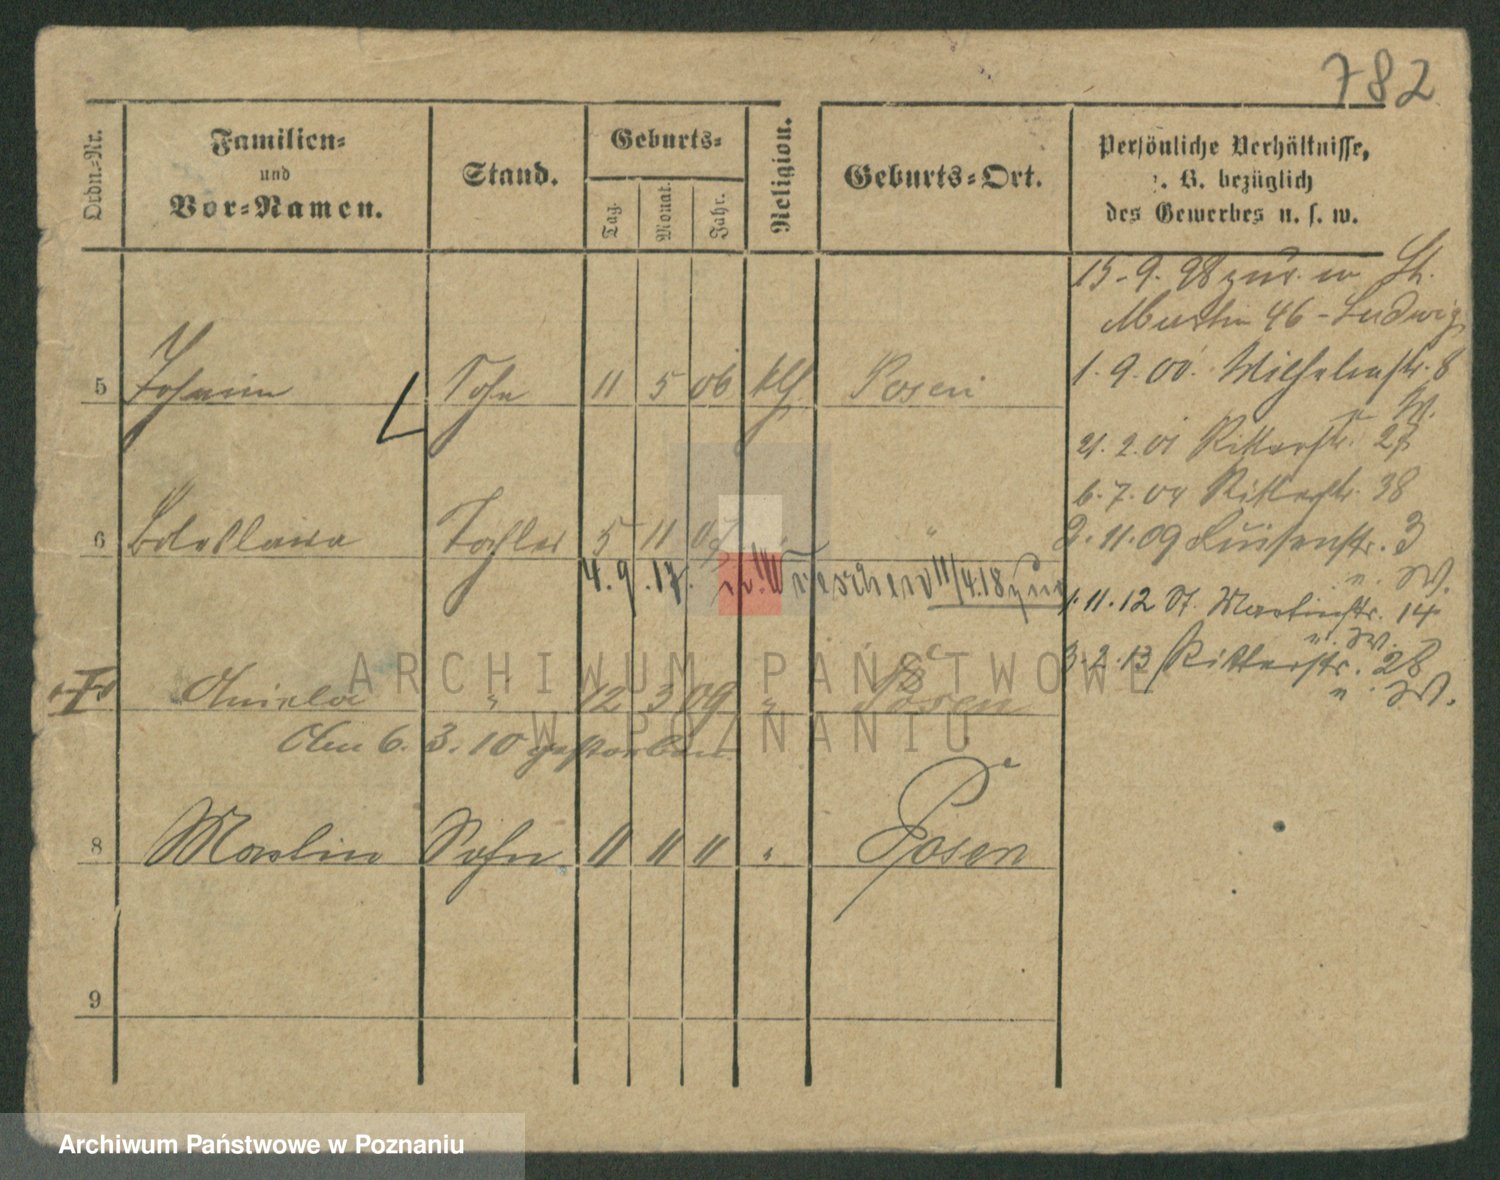 782
Ordn.-Nr.
Familien-
und
Vor-Namen.
Stand.
Geburts-
Tag.
Monat.
Jahr.
Religion.
Geburts-Ort.
Persönliche Verhältnisse,
z. B. bezüglich
des Gewerbes u. s. w.
15-9.98 zur. w St.
Martin 46 - Ludwig
5 Johann Sohn 11 5 06 kth. Posen
1.9.00. Wilhelmstr. 8
u W.
21.2.01 Ritterstr. 27
6.7.04 Ritterstr. 38
6 Boleslawa Tochter 5 11 07 " "
2.11.09 Luisenstr. 3
u. W.
4.9.17. n. Wreschen 11/4.18 zur
1.11.12 St. Martinstr. 14
u. W.
3.2.13 Ritterstr. 28
u. W.
7 Aniela " 12 3 09 " Posen
Am 6.3.10 gestorben
8 Martin Sohn 11 11 11 " Posen
9
ARCHIWUM PAŃSTWOWE
W POZNANIU
Archiwum Państwowe w Poznaniu